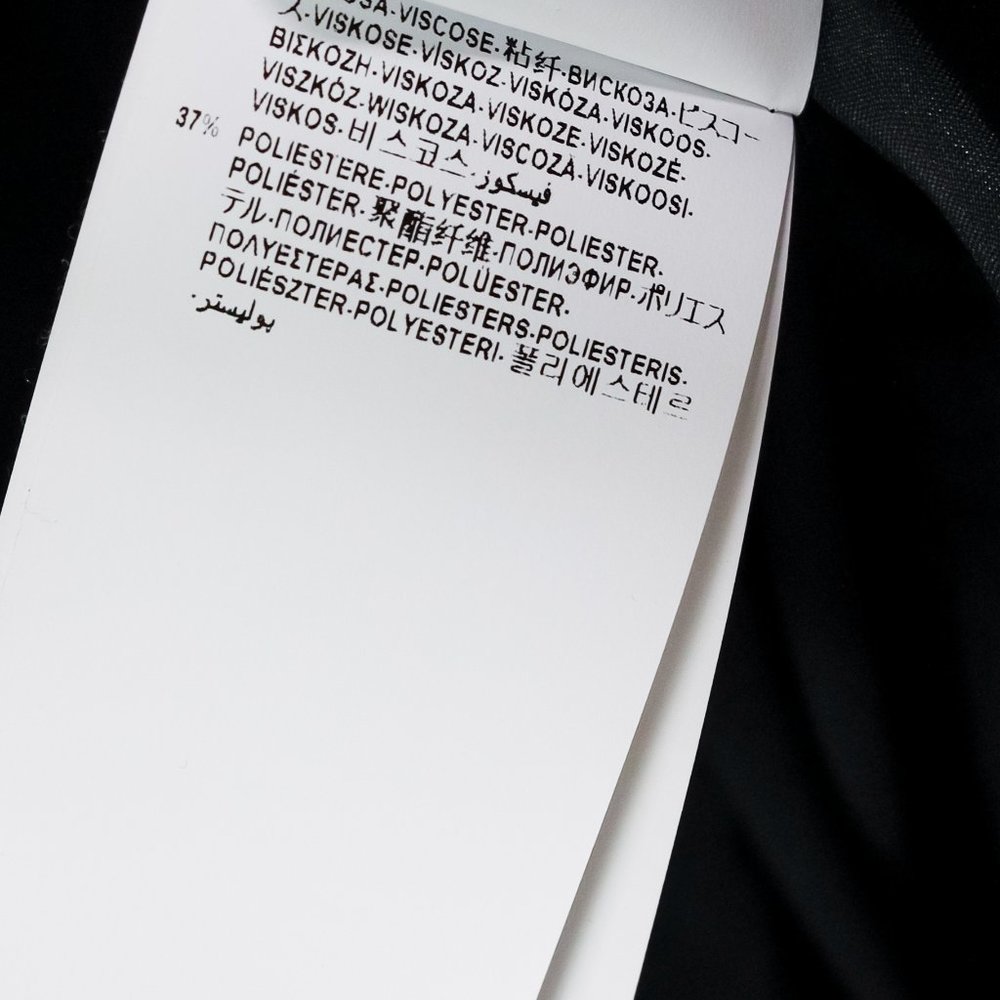 VISCOSE·粘纤·ВИСКОЗА·ビスコー
ス·VISKOSE·VİSKOZ·VISKÓZA·VISKOOS·
ΒΙΣΚΟΖΗ·VISKOZA·VISKOZE·VISKOZĖ·
VISZKÓZ·WISKOZA·VISCOZÀ·VISKOOSI·
VISKOS·비스코스·فيسكوز
37% POLIESTERE·POLYESTER·POLIESTER·
POLIÉSTER·聚酯纤维·ПОЛИЭФИР·ポリエス
テル·ПОЛИЕСТЕР·POLÜESTER·
ΠΟΛΥΕΣΤΕΡΑΣ·POLIESTERS·POLIESTERIS·
POLIÉSZTER·POLYESTERI·폴리에스테르
·بوليستر